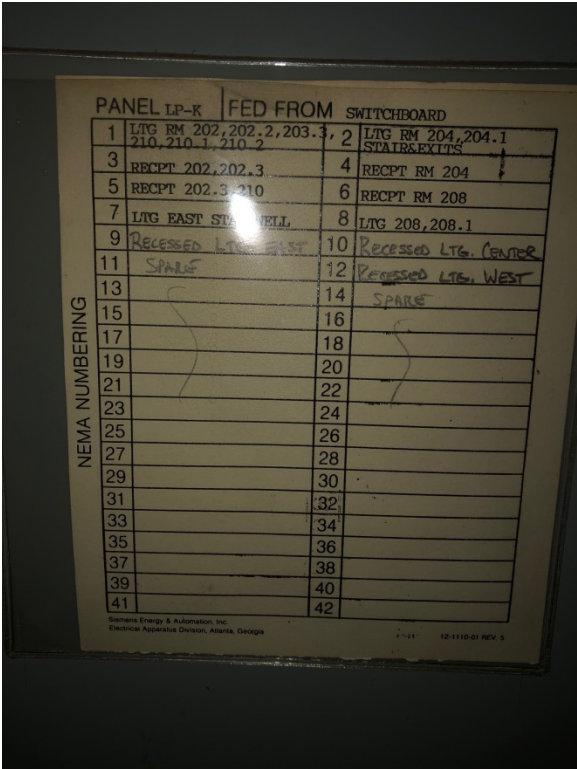 PANEL LP-K FED FROM SWITCHBOARD
1 LTG RM 202,202.2,203.3,
210,210.1,210.2
2 LTG RM 204,204.1
STAIR&EXITS
3 RECPT 202,202.3
4 RECPT RM 204
5 RECPT 202.3,210
6 RECPT RM 208
7 LTG EAST STAIRWELL
8 LTG 208,208.1
9 RECESSED LTG. EAST
10 RECESSED LTG. CENTER
11 SPARE
12 RECESSED LTG. WEST
13
14 SPARE
15
16
17
18
19
20
21
22
23
24
25
26
27
28
29
30
31
32
33
34
35
36
37
38
39
40
41
42
NEMA NUMBERING
Siemens Energy & Automation, Inc.
Electrical Apparatus Division, Atlanta, Georgia
12-1110-01 REV. 5